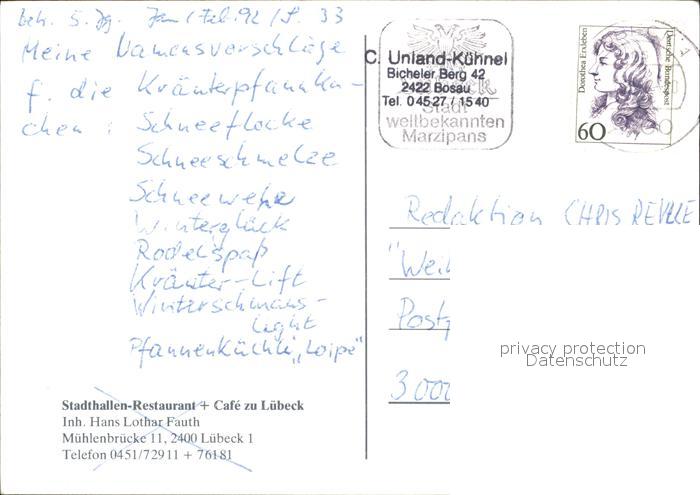 betr. S. Jg. Jan/Feb. 92/S. 33
Meine Namensvorschläge
f. die Kräuterpfannku-
chen: Schneeflocke
Schneeschmelze
Schneewehe
Winterglück
Rodelspaß
Kräuter-Lift
Winterschmaus-
light
Pfannenküchli "Loipe"
Stadthallen-Restaurant + Café zu Lübeck
Inh. Hans Lothar Fauth
Mühlenbrücke 11, 2400 Lübeck 1
Telefon 0451/72911 + 76181
C. Unland-Kühnel
Bicheler Berg 42
2422 Bosau
Tel. 04527/1540
Stadt
weltbekannten
Marzipans
Dorothea Erxleben
Deutsche Bundespost
60
Redaktion CHRIS REVUE
"Wei
Post
3000
privacy protection
Datenschutz